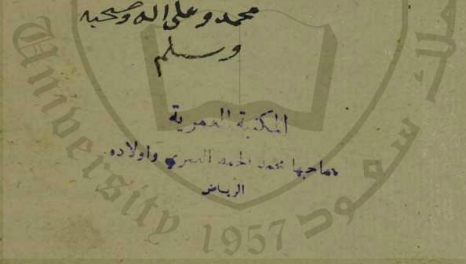 محمد وعلى اله وصحبه
وسلم
المكتبة العمرية
صاحبها محمد الحمد العمري واولاده
الرياض
سعود
University
1957